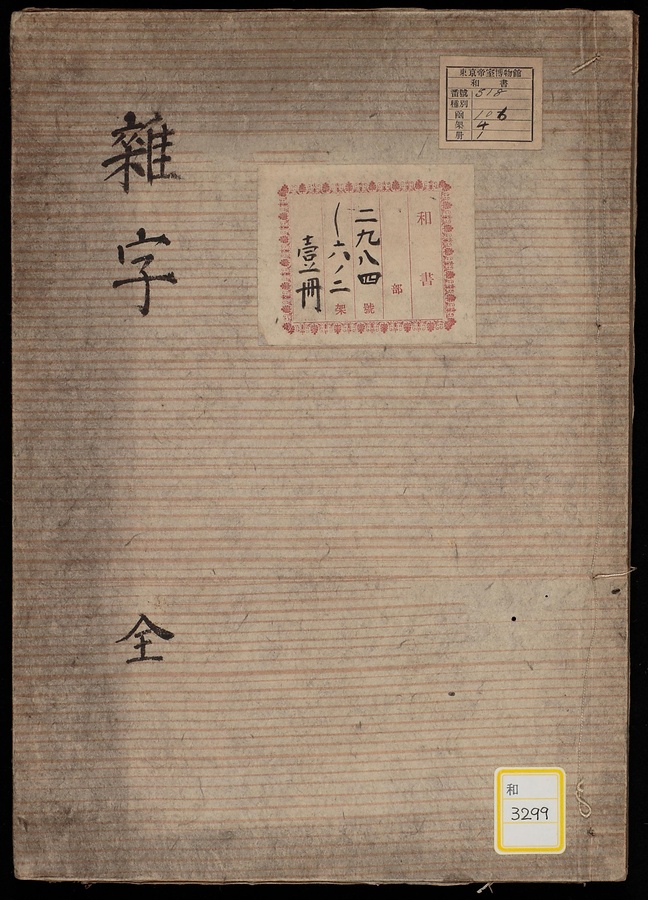 雜字
全
和書
部
二九八四號
一六ノ二架
壹冊
東京帝室博物館
和書
番號 318
種別
函 106
架 4
冊 1
和
3299